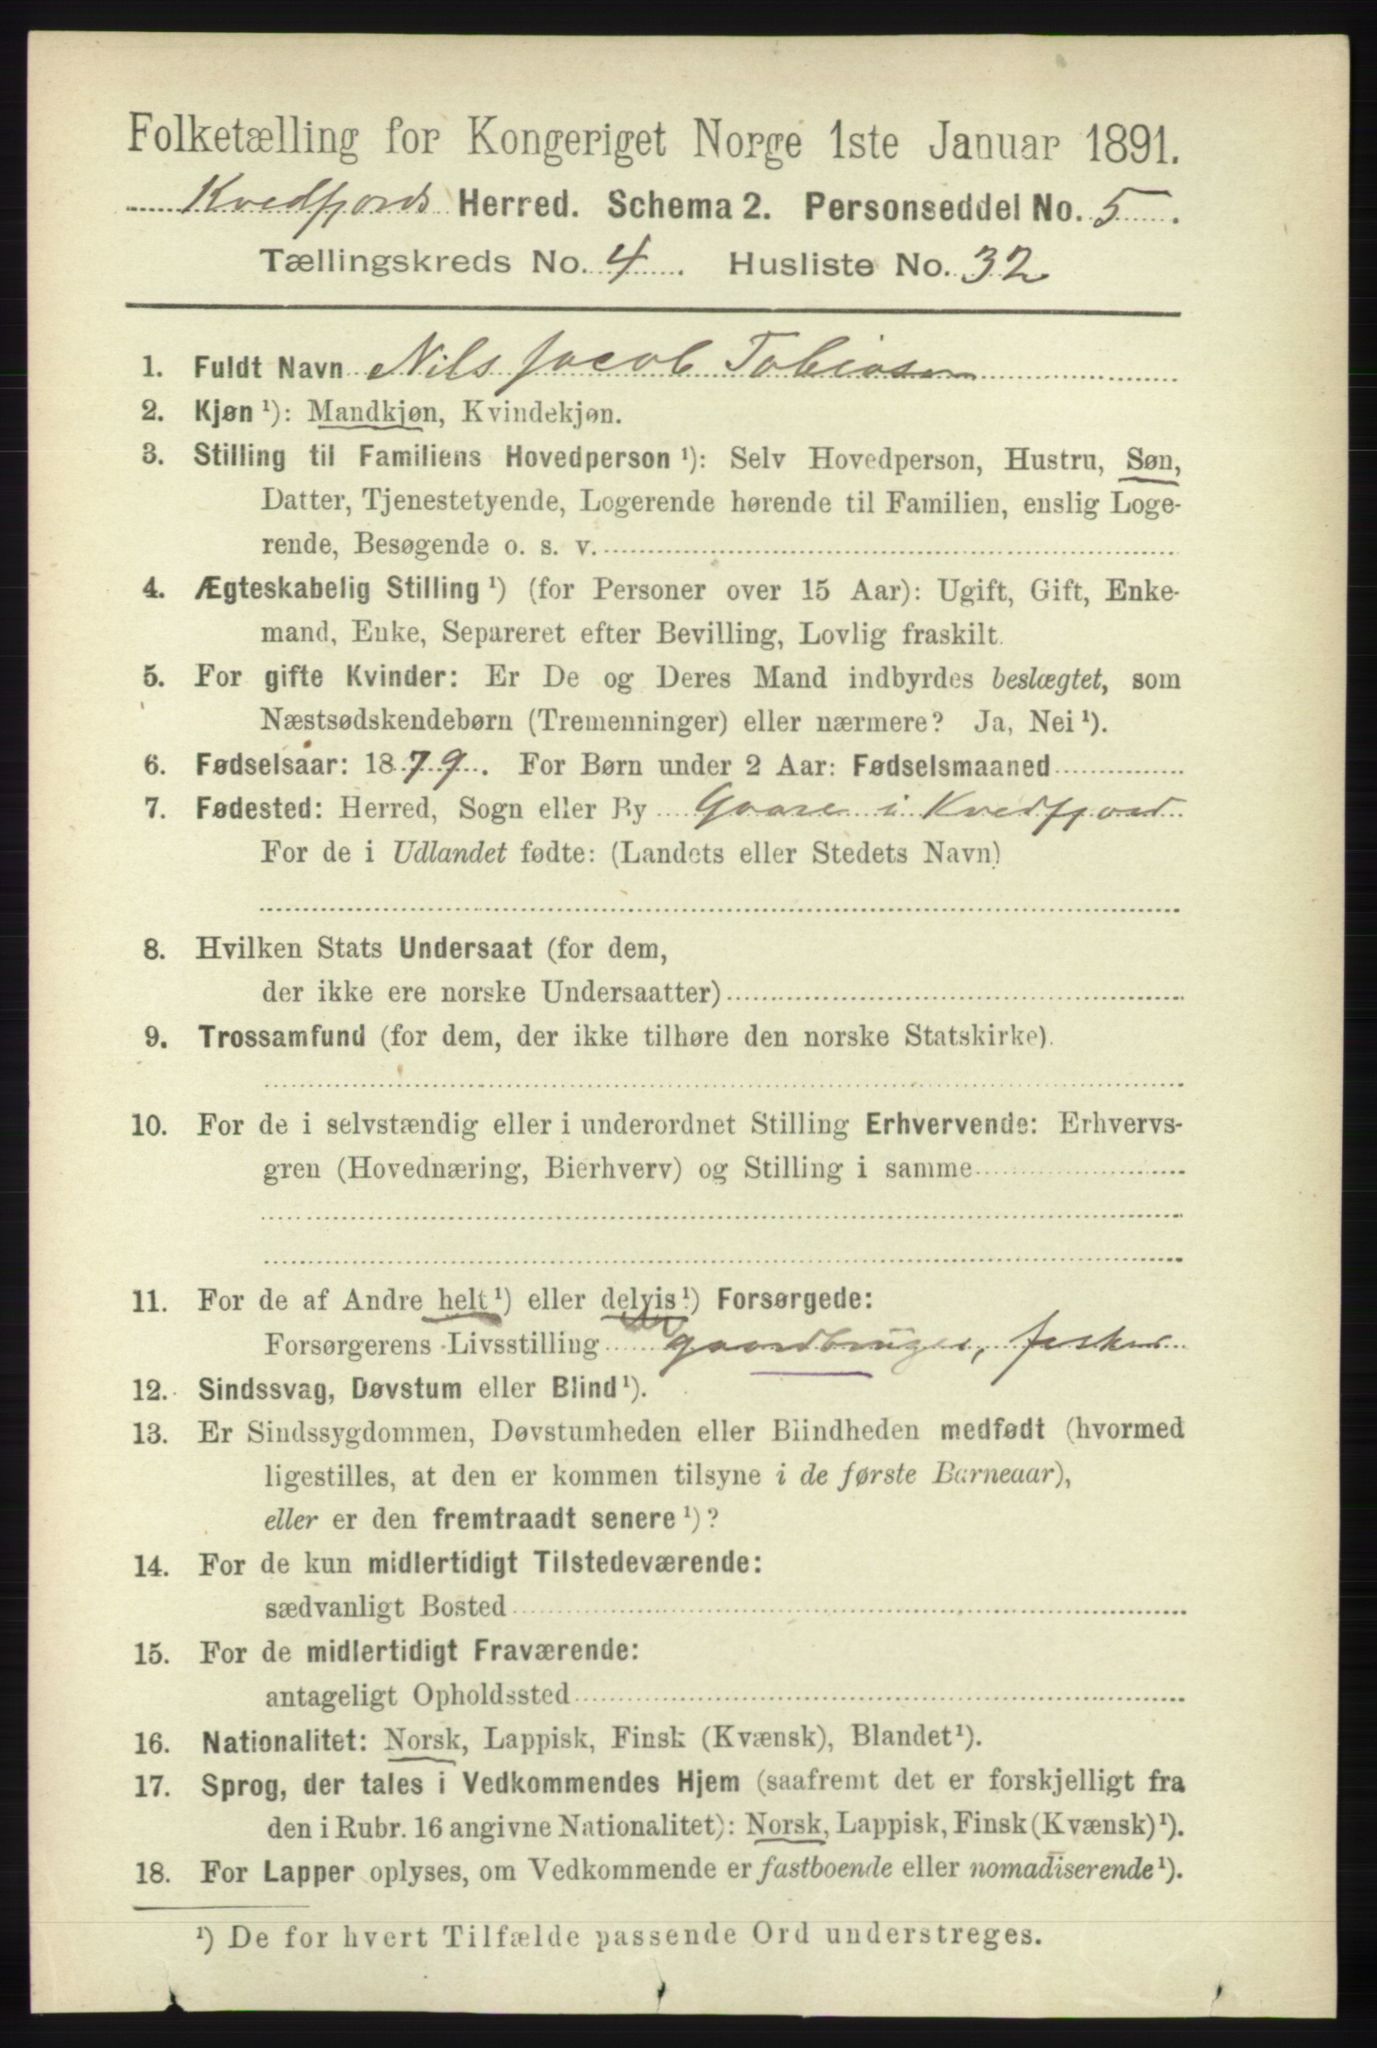 Folketælling for Kongeriget Norge 1ste Januar 1891.
Kvedfjords Herred. Schema 2. Personseddel No. 5.
Tællingskreds No. 4. Husliste No. 32
1. Fuldt Navn Nils Jacob Tobiasen
2. Kjøn ¹): Mandkjøn, Kvindekjøn.
3. Stilling til Familiens Hovedperson ¹): Selv Hovedperson, Hustru, Søn,
Datter, Tjenestetyende, Logerende hørende til Familien, enslig Loge-
rende, Besøgende o. s. v.
4. Ægteskabelig Stilling ¹) (for Personer over 15 Aar): Ugift, Gift, Enke-
mand, Enke, Separeret efter Bevilling, Lovlig fraskilt.
5. For gifte Kvinder: Er De og Deres Mand indbyrdes beslægtet, som
Næstsødskendebørn (Tremenninger) eller nærmere? Ja, Nei ¹).
6. Fødselsaar: 1879. For Børn under 2 Aar: Fødselsmaaned
7. Fødested: Herred, Sogn eller By Gaare i Kvedfjord
For de i Udlandet fødte: (Landets eller Stedets Navn)
8. Hvilken Stats Undersaat (for dem,
der ikke ere norske Undersaatter)
9. Trossamfund (for dem, der ikke tilhøre den norske Statskirke).
10. For de i selvstændig eller i underordnet Stilling Erhvervende: Erhvervs-
gren (Hovednæring, Bierhverv) og Stilling i samme
11. For de af Andre helt ¹) eller delvis ¹) Forsørgede:
Forsørgerens Livsstilling gaardbruger, fisker
12. Sindssvag, Døvstum eller Blind ¹).
13. Er Sindssygdommen, Døvstumheden eller Blindheden medfødt (hvormed
ligestilles, at den er kommen tilsyne i de første Barneaar),
eller er den fremtraadt senere ¹)?
14. For de kun midlertidigt Tilstedeværende:
sædvanligt Bosted
15. For de midlertidigt Fraværende:
antageligt Opholdssted
16. Nationalitet: Norsk, Lappisk, Finsk (Kvænsk), Blandet ¹).
17. Sprog, der tales i Vedkommendes Hjem (saafremt det er forskjelligt fra
den i Rubr. 16 angivne Nationalitet): Norsk, Lappisk, Finsk (Kvænsk) ¹).
18. For Lapper oplyses, om Vedkommende er fastboende eller nomadiserende ¹).
¹) De for hvert Tilfælde passende Ord understreges.